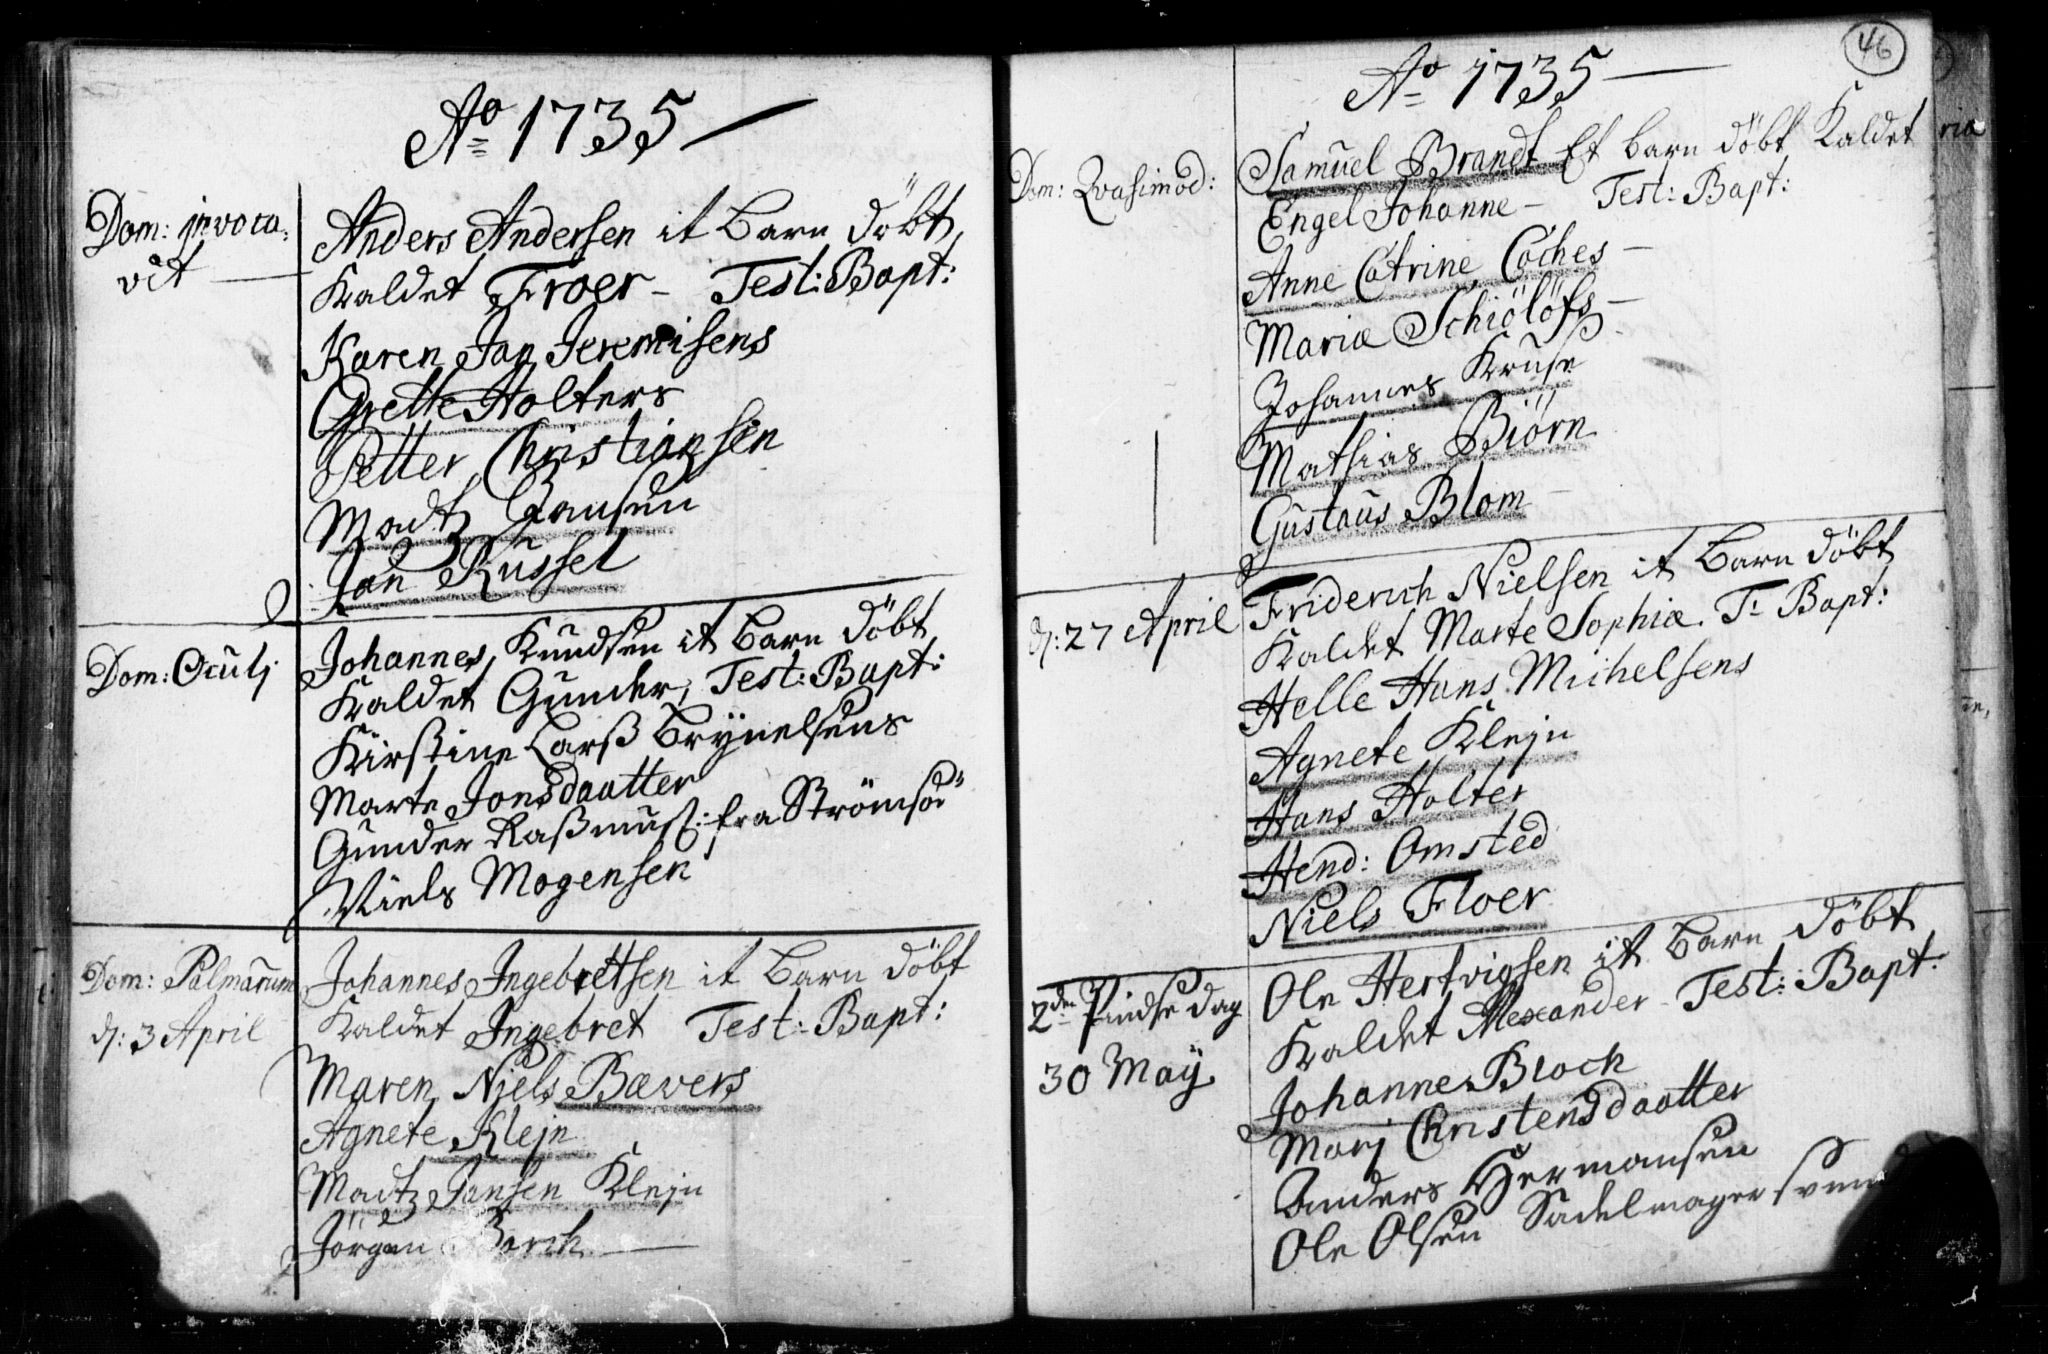 Ao 1735
Dom: invoca-
vit
Anders Andersen it barn döbt
Kaldet Froer - Test: Bapt:
Karen Jan Jeremisens
Grette Holters
Petter Christiansen
Madtz Hansen
Jan Russel
Dom: Oculj
Johannes Knudsen it barn döbt
Kaldet Gunder, Test: Bapt:
Kirstine Larß Brynelsens
Marte Jonsdaatter
Gunder Raßmuß: fra Strömsöe
Niels Mogensen
Dom: Palmarum
d: 3 April
Johannes Ingebretsen it barn döbt
Kaldet Ingebret Test: Bapt:
Maren Njels Bævers
Agnete Klejn
Madtz Jansen Klejn
Jörgen Borch
46
Ao 1735
Dom: Qvasimod:
Samuel Brandt Et barn döbt Kaldet
Engel Johanne - Test: Bapt:
Anne Catrine Coches
Maria Schiölöfs
Johannes Kruse
Mathias Biörn
Gustaus Blom
d: 27 April
Friderich Nielsen it barn döbt
Kaldet Marte Sophia. T: Bapt:
Helle Hans Michelsens
Agnete Klejn
Hans Holter
Hend: Omsted
Niels Floer
2den Pindse dag
30 Maÿ
Ole Hertvigsen it barn döbt
Kaldet Alexander - Test: Bapt:
Johanne Bloch
Marj Christensdaatter
Anders Hermansen
Ole Olsen Sadelmager